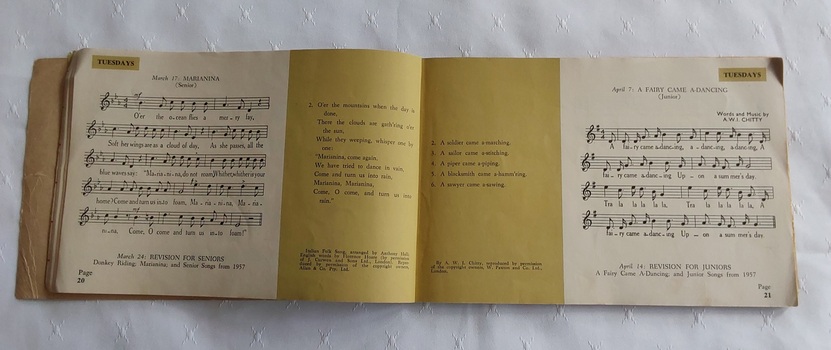 TUESDAYS
March 17: MARIANINA
(Senior)
mf
O'er the o-cean flies a mer-ry fay,
Soft her wings are as a cloud of day, As she passes, all the
blue waves say: "Ma-ria-ni-na, do not roam, Whither, whither is your
home? Come and turn us in-to foam, Ma-ria-ni-na, Ma-ria-
ni-na, Come, O come, and turn us in-to foam!"
March 24: REVISION FOR SENIORS
Donkey Riding; Marianina; and Senior Songs from 1957
Page
20
2. O'er the mountains when the day is
done,
There the clouds are gath'ring o'er
the sun,
While they weeping, whisper one by
one:
"Marianina, come again,
We have tried to dance in vain,
Come and turn us into rain,
Marianina, Marianina,
Come, O come, and turn us into
rain."
Italian Folk Song, arranged by Anthony
English words by Florence Hoare (by permission
of J. Curwen and Sons Ltd., London). Repro-
duced by permission of the copyright owners,
Allan & Co. Pty. Ltd.
2. A soldier came a-marching.
3. A sailor came a-stitching.
4. A piper came a-piping.
5. A blacksmith came a-hamm'ring.
6. A sawyer came a-sawing.
By A. W. I. Chitty, reproduced by permission
of the copyright owners, W. Paxton and Co. Ltd.,
London.
TUESDAYS
April 7: A FAIRY CAME A-DANCING
(Junior)
Words and Music by
A.W.I. CHITTY
A fai-ry came a-danc-ing, a-danc-ing, a-dancing, A
fai-ry came a-danc-ing Up-on a summer's day.
Tra la la la la, Tra la la la la, A
fai-ry came a-danc-ing Up-on a sum mer's day.
April 14: REVISION FOR JUNIORS
A Fairy Came A-Dancing; and Junior Songs from 1957
Page
21